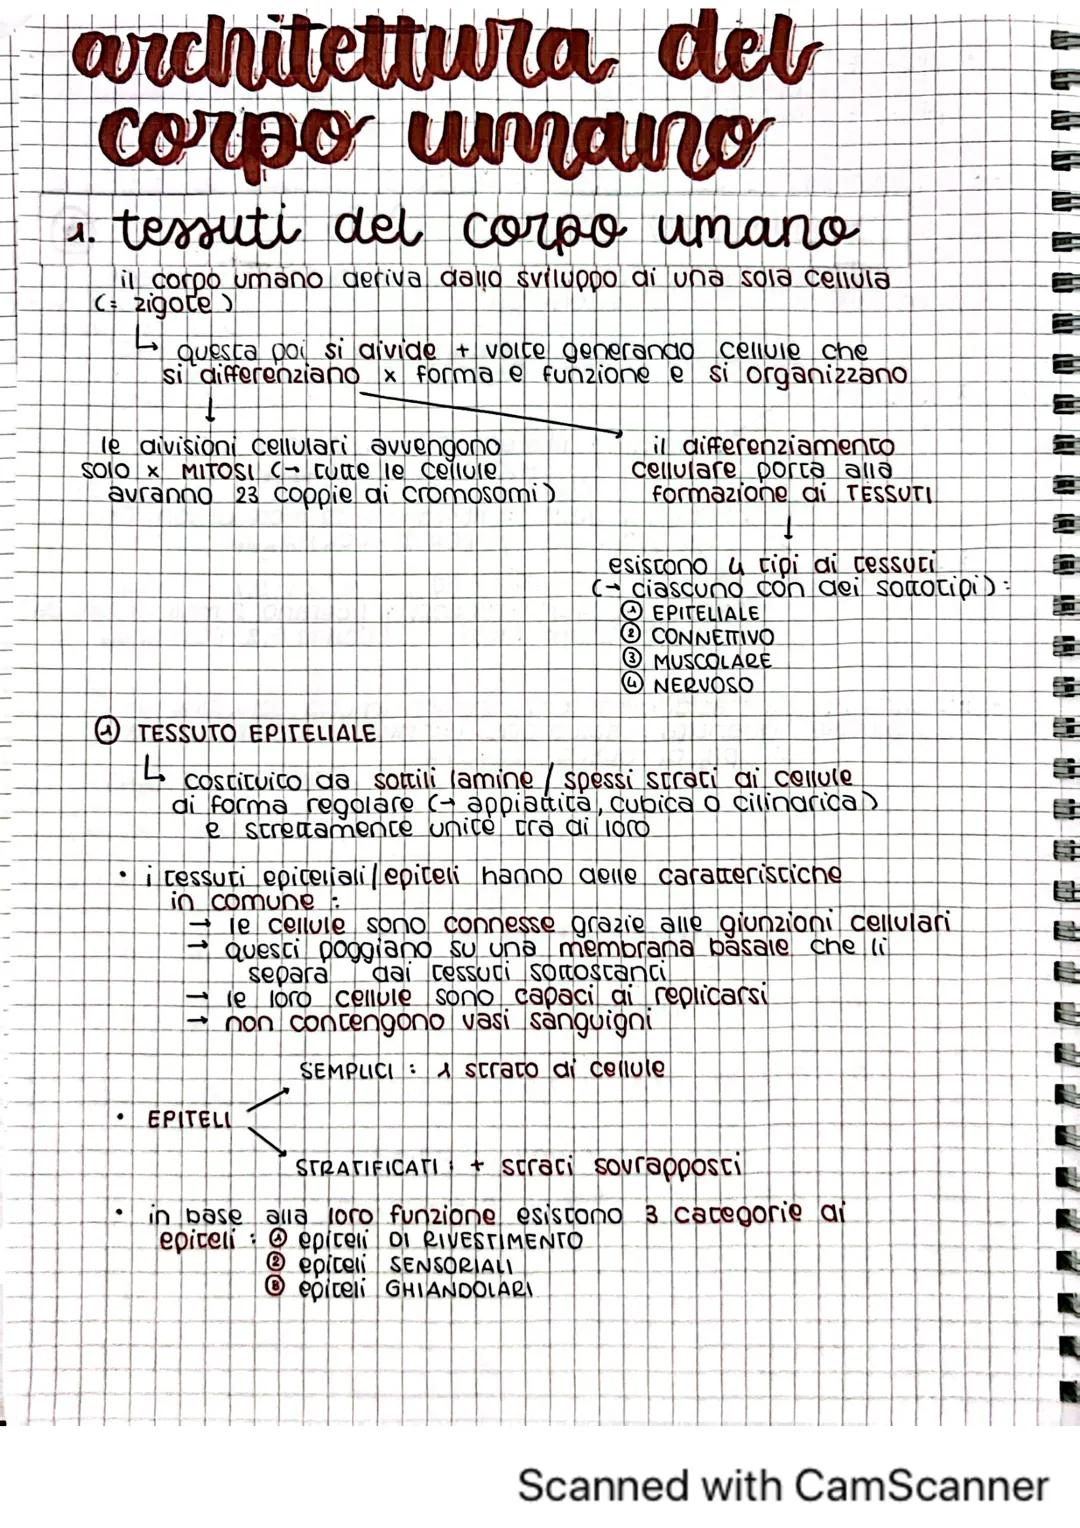 architettura del
corpo umano
1. tessuti del corpo umano
il corpo umano deriva dallo sviluppo di una sola cellula
(= zigote)
↳ questa poi si divide + volte generando cellule che
si differenziano x forma e funzione e si organizzano
↓
le divisioni cellulari avvengono
solo x MITOSI (→ tutte le cellule
avranno 23 coppie di cromosomi)
il differenziamento
cellulare porta alla
formazione di TESSUTI
↓
esistono 4 tipi di tessuti
(→ ciascuno con dei sottotipi):
① EPITELIALE
② CONNETTIVO
③ MUSCOLARE
④ NERVOSO
① TESSUTO EPITELIALE
↳ costituito da sottili lamine / spessi strati di cellule
di forma regolare (→ appiattita, cubica o cilindrica)
e strettamente unite tra di loro
• i tessuti epiteliali/epiteli hanno delle caratteristiche
in comune :
→ le cellule sono connesse grazie alle giunzioni cellulari
→ questi poggiano su una membrana basale che li
separa dai tessuti sottostanti
→ le loro cellule sono capaci di replicarsi
→ non contengono vasi sanguigni
SEMPLICI : 1 strato di cellule
• EPITELI
STRATIFICATI : + strati sovrapposti
• in base alla loro funzione esistono 3 categorie di
epiteli : ① epiteli DI RIVESTIMENTO
② epiteli SENSORIALI
③ epiteli GHIANDOLARI
Scanned with CamScanner